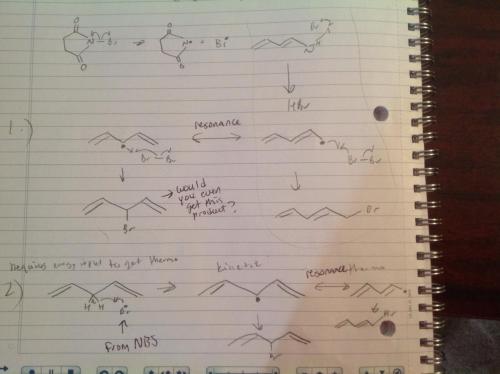 O
O
N Br
N•
+ Br•
Br•
H
O
O
HBr
1.)
resonance
Br Br
Br Br
→ would
you even
get this
product?
Br
Br
requires energy input to get thermo
kinetic
resonance thermo
2)
H H
Br•
Br
from NBS
Br